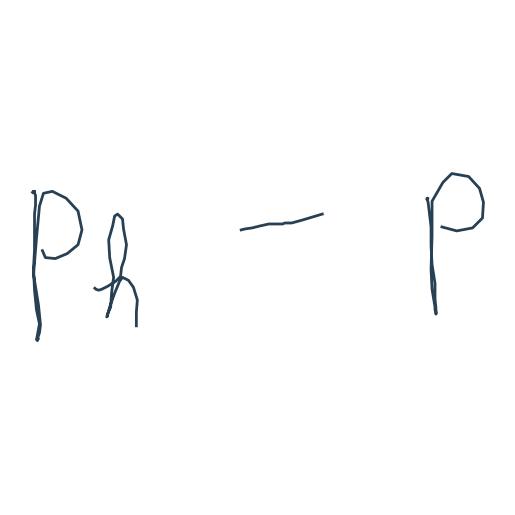 Ph - P